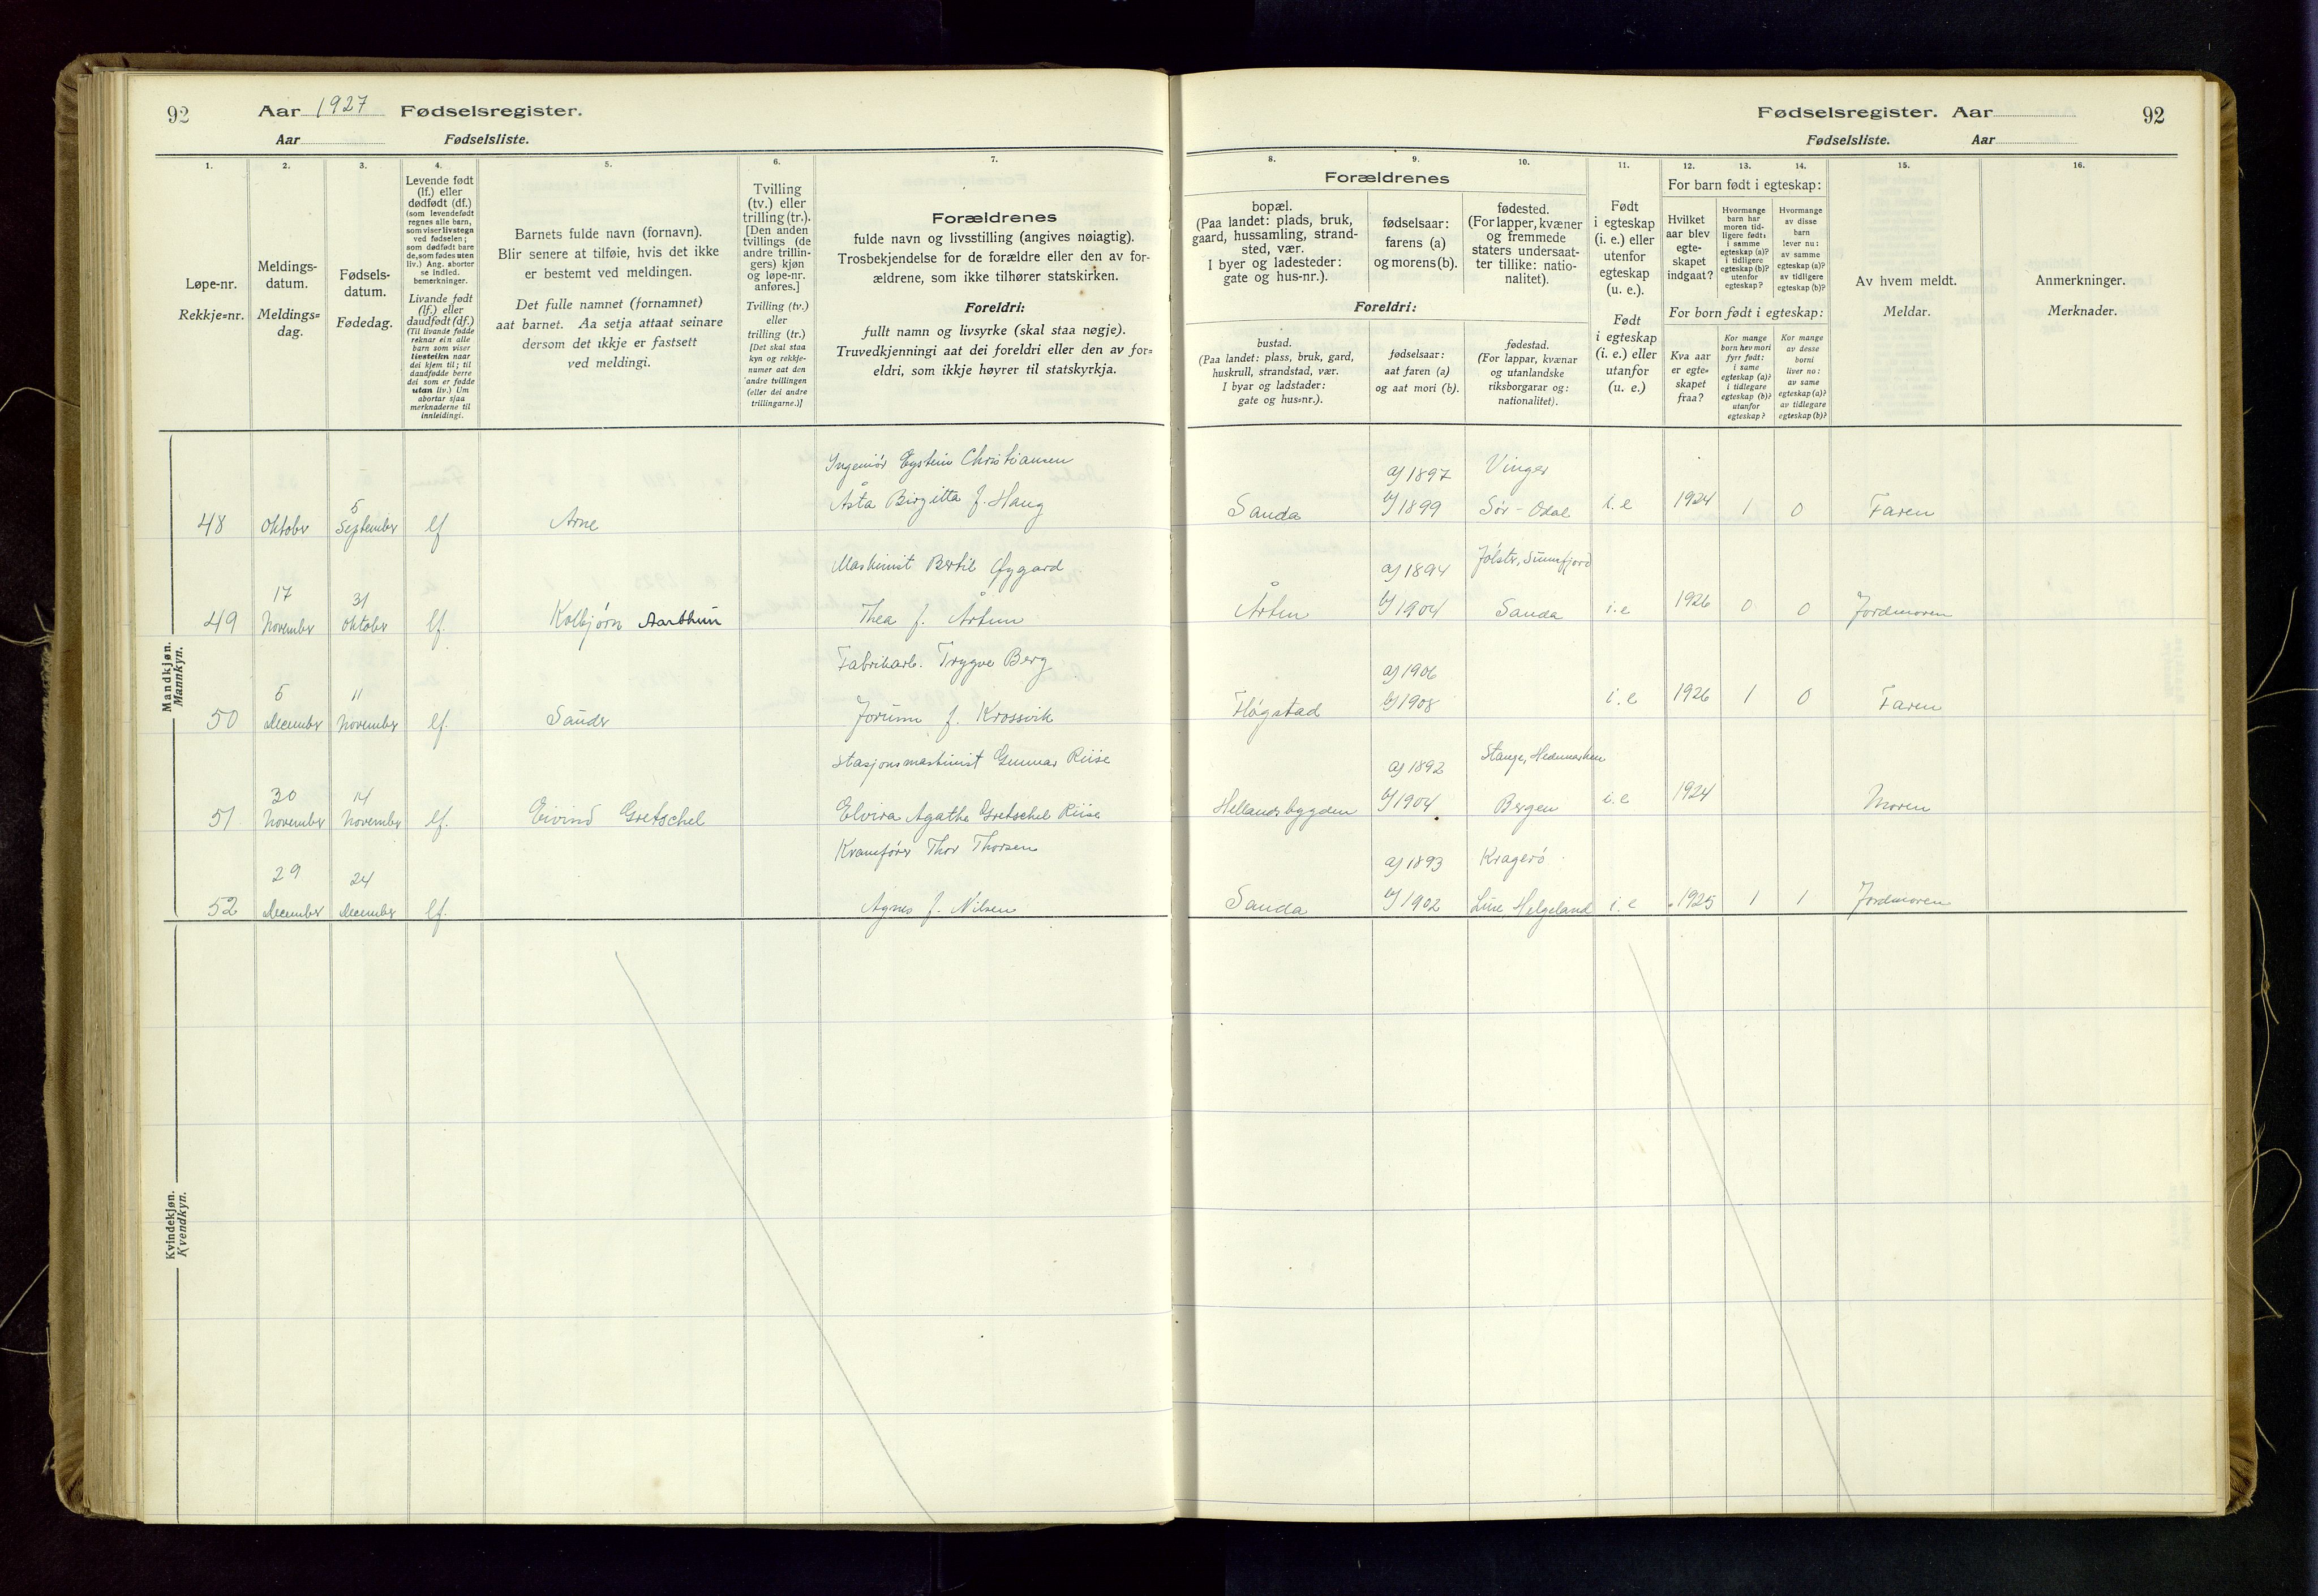 92
Aar 1927 Fødselsregister.
Aar Fødselsliste.
1.
2.
3.
4.
5.
6.
7.
Løpe-nr.
Rekkje=nr.
Meldings-
datum.
Meldings=
dag.
Fødsels-
datum.
Fødedag.
Levende født
(lf.) eller
dødfødt (df.)
(som levendefødt
regnes alle barn,
som viser livstegn
ved fødselen;
som dødfødt bare
de, som fødes uten
liv.) Ang. aborter
se indled.
bemerkninger.
Livande født
(lf.) eller
daudfødt (df.)
(Til livande fødde
reknar ein alle
barn som viser
livsteikn naar
dei kjem til; til
daudfødde berre
dei som er fødde
utan liv.) Um
abortar sjaa
merknaderne til
innleidingi.
Barnets fulde navn (fornavn).
Blir senere at tilføie, hvis det ikke
er bestemt ved meldingen.
Det fulle namnet (fornamnet)
aat barnet. Aa setja attaat seinare
dersom det ikkje er fastsett
ved meldingi.
Tvilling
(tv.) eller
trilling (tr.).
[Den anden
tvillings (de
andre trillin-
gers) kjøn
og løpe-nr.
anføres.]
Tvilling (tv.)
eller
trilling (tr.)
[Det skal staa
kyn og rekkje-
numer aat den
andre tvillingen
(eller dei andre
trillingarne.)]
Forældrenes
fulde navn og livsstilling (angives nøiagtig).
Trosbekjendelse for de forældre eller den av for-
ældrene, som ikke tilhører statskirken.
Foreldri:
fullt namn og livsyrke (skal staa nøgje).
Truvedkjenningi aat dei foreldri eller den av for=
eldri, som ikkje høyrer til statskyrkja.
Mandkjøn.
Mannkyn.
Ingeniör Eystein Christiansen
Åsta Birgitta f. Haug
5
48 Oktober September lf Arne
Maskinist Bertil Øygard
17 31
49 November Oktober lf. Kolbjørn Aarthun Thea f. Årtun
Fabrikarb. Trygve Berg
5 11
50 December November lf. Sander Jorunn f. Krossvik
Stasjonsmaskinist Gunnar Riise
30 14
51 November November lf. Eivind Gretschel Elvira Agathe Gretschel Riise
Kranefører Thor Thorsen
29 24
52 December December lf. Agnes f. Nilsen
Kvindekjøn.
Kvendkyn.
Fødselsregister. Aar
92
Fødselsliste. Aar
8.
9.
10.
11.
12.
13.
14.
15.
16.
Forældrenes
bopæl.
(Paa landet: plads, bruk,
gaard, hussamling, strand-
sted, vær.
I byer og ladesteder:
gate og hus-nr.).
fødselsaar:
farens (a)
og morens (b).
fødested.
(For lapper, kvæner
og fremmede
staters undersaat-
ter tillike: natio-
nalitet).
Foreldri:
bustad.
(Paa landet: plass, bruk, gard,
huskrull, strandstad, vær.
I byar og ladstader:
gate og hus=nr.).
fødselsaar:
aat faren (a)
og aat mori (b).
fødestad.
(For lappar, kvænar
og utanlandske
riksborgarar og:
nationalitet).
Født
i egteskap
(i. e.) eller
utenfor
egteskap
(u. e.).
Født
i egteskap
(i. e.) eller
utanfor
(u. e.)
For barn født i egteskap:
Hvilket
aar blev
egte-
skapet
indgaat?
Hvormange
barn har
moren tid-
ligere født:
i samme
egteskap (a)?
i tidligere
egteskap (b)?
utenfor
egteskap?
Hvormange
av disse
barn
lever nu:
av samme
egteskap (a)?
av tidligere
egteskap (b)?
For born født i egteskap:
Kva aar
er egte=
skapet
fraa?
Kor mange
born hev mori
fyrr født:
i same
egteskap (a)?
i tidlegare
egteskap (b)?
utanfor
egteskap?
Kor mange
av desse
borni
liver no:
av same
egteskap (a)?
av tidlegare
egteskap (b)?
Av hvem meldt.
Meldar.
Anmerkninger.
Merknader.
a) 1897 Vinger
Sanda b) 1899 Sør-Odal i.e 1924 1 0 Faren
a) 1894 Jølster, Sunnfjord
Årtun b) 1904 Sanda i.e 1926 0 0 Jordmoren
a) 1906
Høgstad b) 1908 i.e 1926 1 0 Faren
a) 1892 Stange, Hedemarken
Hellandsbygden b) 1904 Bergen i.e 1924 Moren
a) 1893 Kragerö
Sanda b) 1902 Helgeland i.e 1925 1 1 Jordmoren